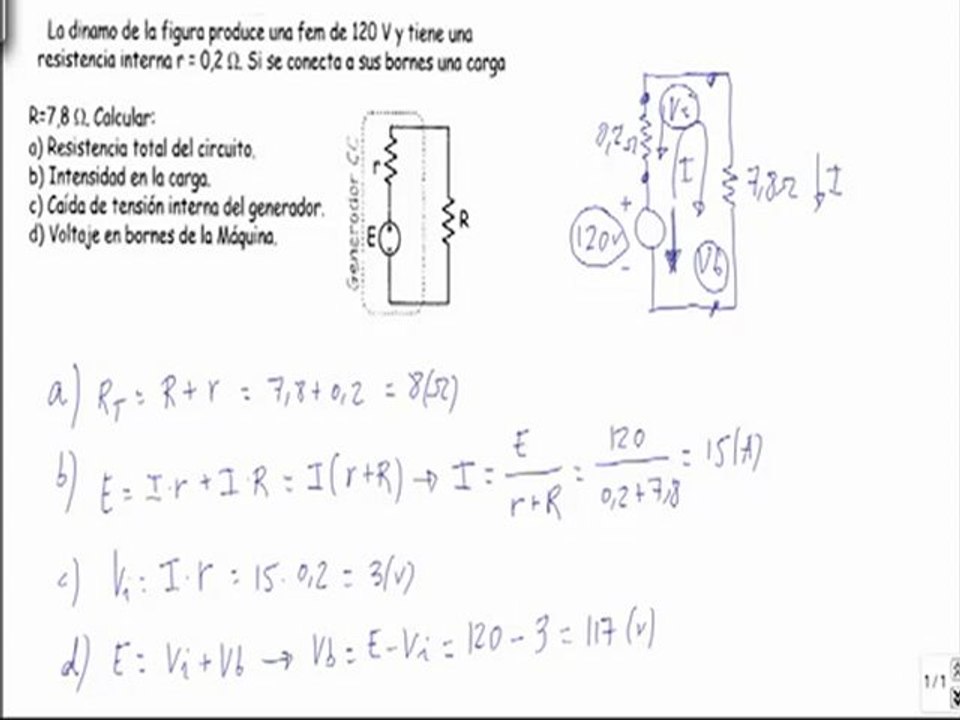 La dinamo de la figura produce una fem de 120 V y tiene una
resistencia interna r = 0,2 Ω. Si se conecta a sus bornes una carga
R=7,8 Ω. Calcular:
a) Resistencia total del circuito.
b) Intensidad en la carga.
c) Caída de tensión interna del generador.
d) Voltaje en bornes de la Máquina.
Generador CC
r
E
R
0,2Ω
Vi
I
7,8Ω
I
+
120v
-
Vb
a) R_T = R + r = 7,8 + 0,2 = 8(Ω)
b) E = I·r + I·R = I(r+R) → I = E/(r+R) = 120/(0,2+7,8) = 15(A)
c) Vi = I·r = 15·0,2 = 3(v)
d) E = Vi + Vb → Vb = E - Vi = 120 - 3 = 117 (v)
1/1